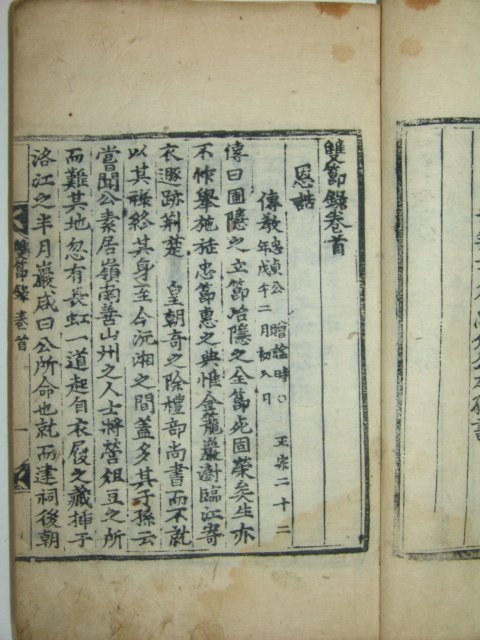 雙節錄卷首
恩誥
傳敎忠貞公 贈諡時○ 正宗二十二
年戊午二月初八日
傳曰圃隱之立節冶隱之全節死固榮矣生亦
不怍擧施旌忠節惠之典惟金籠巖澍臨江寄
衣遯跡荊楚 皇朝奇之除禮部尚書而不就
以其祿終其身至今沅湘之間蓋多其子孫云
嘗聞公素居嶺南善山州之人士將營俎豆之所
而難其地忽有長虹一道起自衣屐之藏揷于
洛江之半月巖咸曰公所命也就而建祠後朝
雙節錄 卷首 一